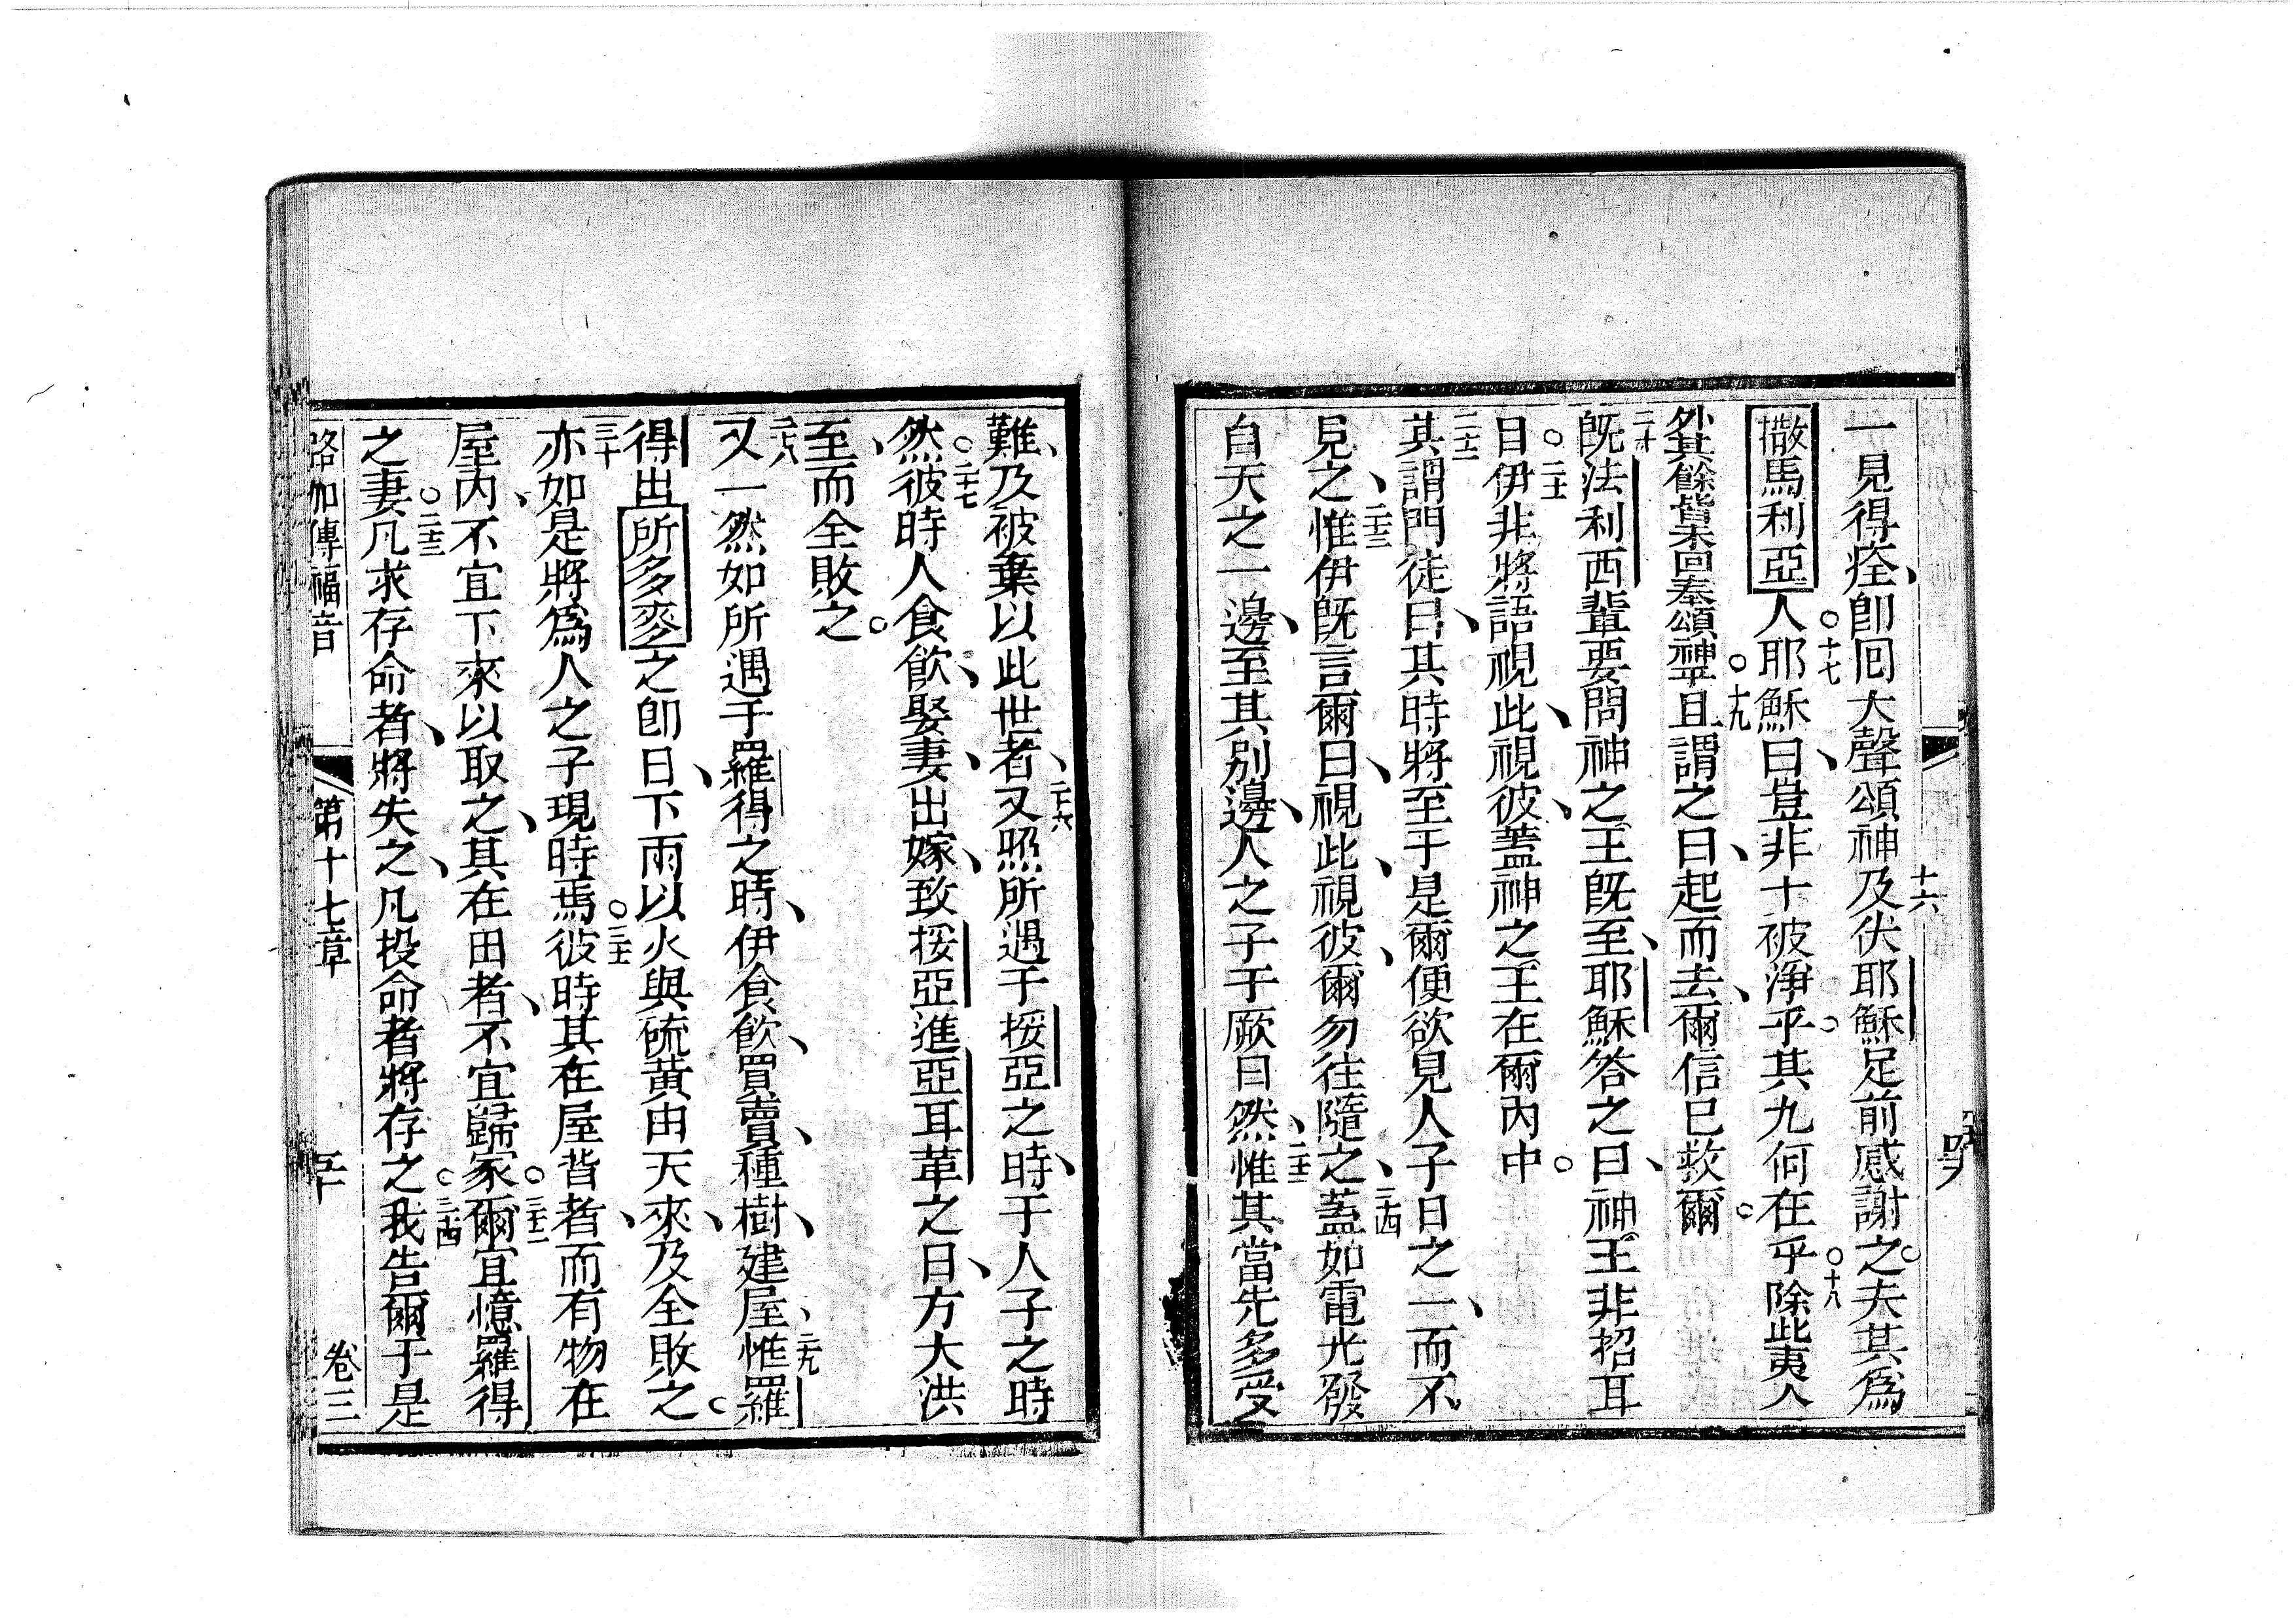 一見得痊、卽囘大聲頌神十六及伏耶穌足前感謝之。夫其爲
撒馬利亞人。十七耶穌曰、豈非十被淨乎。其九何在乎。十八除此夷人
外其餘皆未回奉頌神。十九且謂之曰、起而去、爾信已救爾。
二十既法利西輩要問神之王既至、耶穌答之曰、神王非招耳
目。二十一伊非將語視此、視彼、蓋神之王在爾內中。
二十二其謂門徒曰、其時將至于是爾便欲見人子日之一、而不
見之、二十三惟伊旣言爾曰、視此、視彼、爾勿往隨之、二十四蓋如電光發
自天之一邊、至其別邊、人之子于厥日然、二十五惟其當先多受
難、及被棄以此世者、二十六又照所遇于挼亞之時、于人子之時
然。二十七彼時人食飲、娶妻、出嫁、致挼亞進亞耳革之日、方大洪
至、而全敗之。
二十八又一然如所遇于羅得之時、伊食飲、買賣、種樹、建屋、二十九惟羅
得出所多麥之卽日、下雨以火與硫黃由天來、及全敗之。
三十亦如是將爲人之子現時焉。三十一彼時其在屋背者、而有物在
屋內、不宜下來以取之、其在田者、不宜歸家。三十二爾宜憶羅得
之妻。三十三凡求存命者、將失之、凡投命者將存之。三十四我告爾于是
路加傳福音 第十七章 五十 卷三